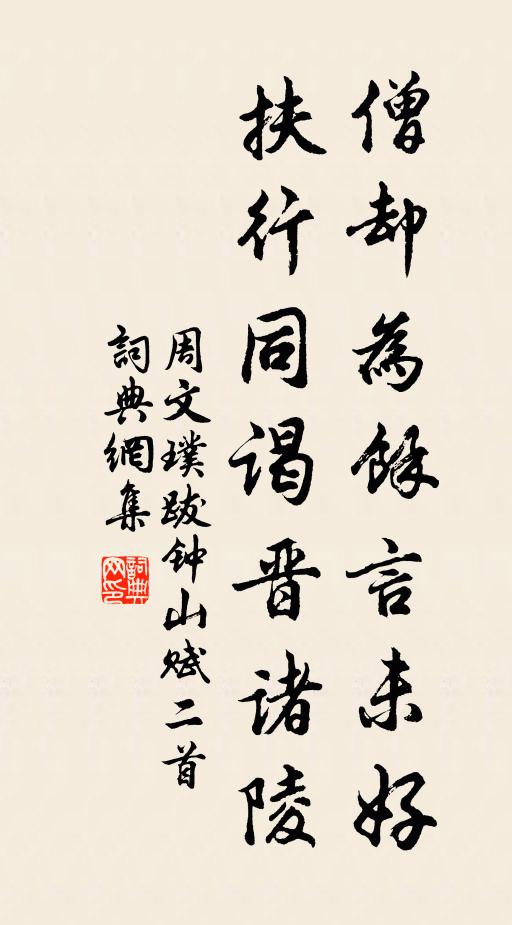 僧却為餘言未好
扶行同謁晋诸陵
周文璞跋钟山赋二首
詞典網集
詞典网印